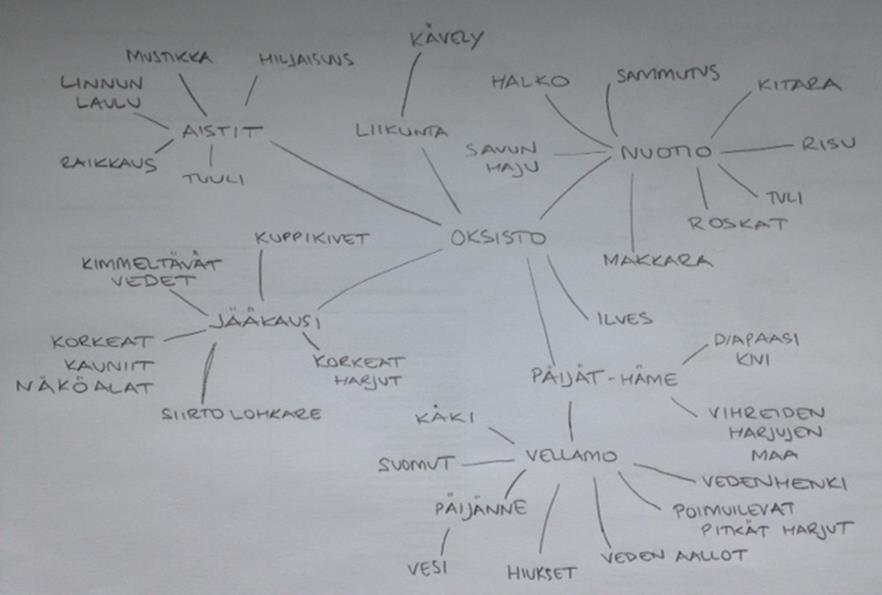 KÄVELY
MUSTIKKA
HILJAISUUS
LINNUN
LAULU
AISTIT
RAIKKAUS
TUULI
LIIKUNTA
HALKO
SAMMUTUS
KITARA
SAVUN
HAJU
NUOTIO
RISU
TULI
ROSKAT
MAKKARA
OKSISTO
KUPPIKIVET
KIMMELTÄVÄT
VEDET
JÄÄKAUSI
KORKEAT
KAUNIIT
NÄKÖALAT
KORKEAT
HARJUT
SIIRTOLOHKARE
ILVES
PÄIJÄT-HÄME
DIAPAASI
KIVI
VIHREIDEN
HARJUJEN
MAA
KÄKI
SUOMUT
VELLAMO
VEDENHENKI
PÄIJÄNNE
POIMUILEVAT
PITKÄT HARJUT
VESI
HIUKSET
VEDEN AALLOT